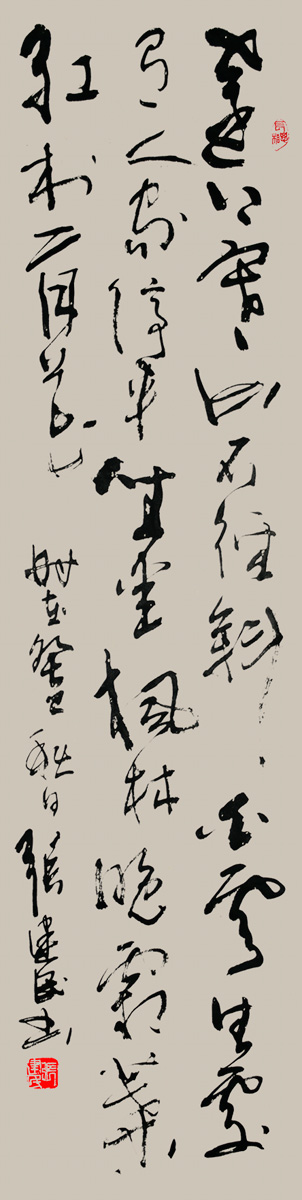 遠上寒山石徑斜白雲生處
有人家停車坐愛楓林晚霜葉
紅於二月花
歲在癸巳秋日張建民書